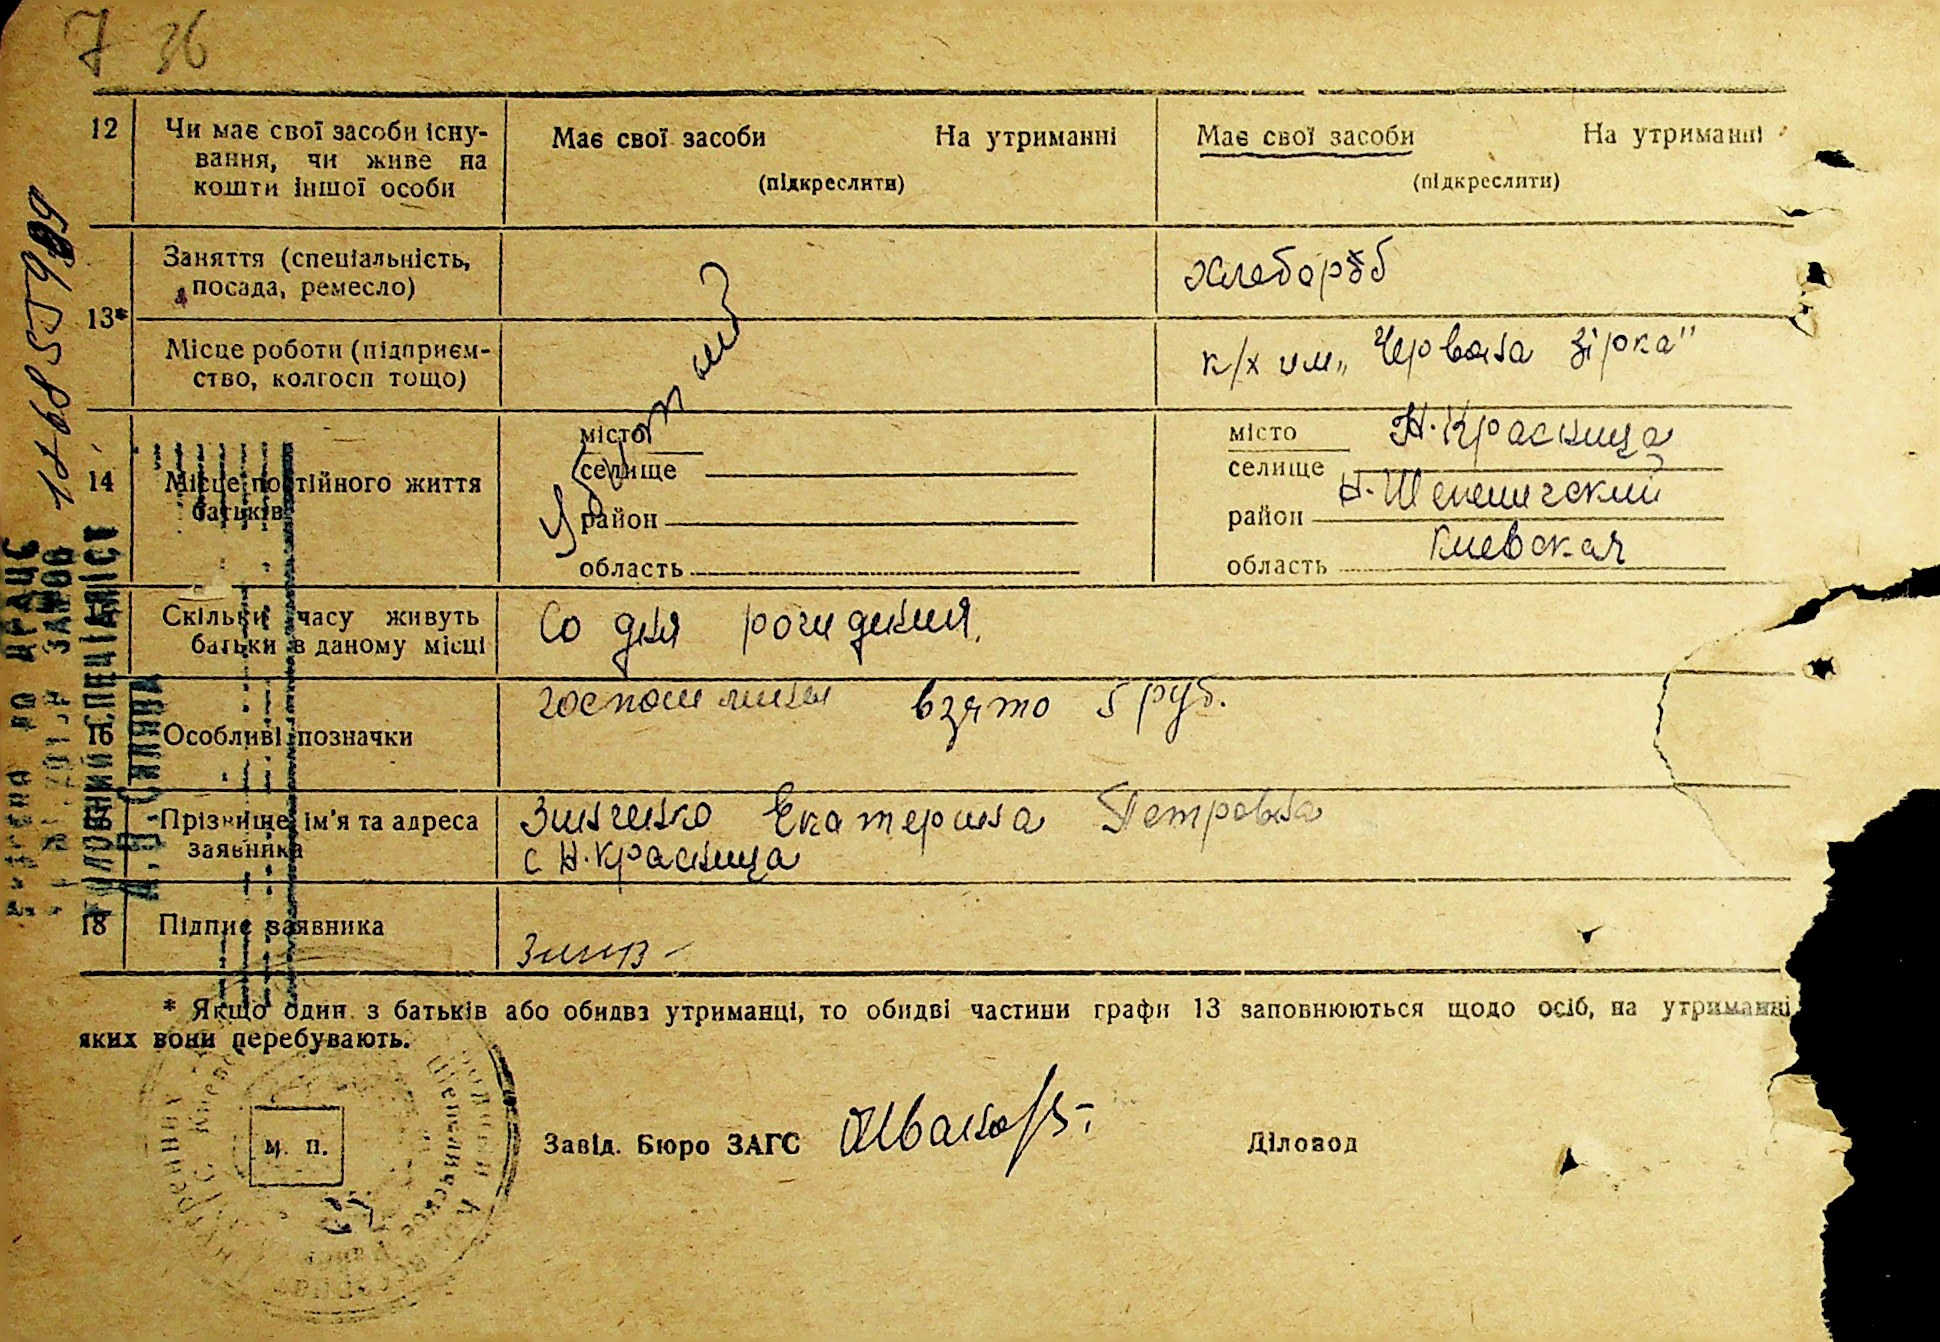 7 36
12 Чи має свої засоби існу-
вання, чи живе на
кошти іншої особи
Має свої засоби На утриманні
(підкреслити)
Має свої засоби На утриманні
(підкреслити)
13*
Заняття (спеціальність,
посада, ремесло)
хлебороб
Місце роботи (підприєм-
ство, колгосп тощо)
к/х им „Червона зірка"
14 Місце постійного життя
батьків
місто
селище
район
область
місто Н.Красница
селище
район
область Киевская
Скільки часу живуть
батьки в даному місці
Со дня рождения.
16 Особливі позначки
госпошлины взято 5 руб.
Прізвище, ім'я та адреса
заявника
Зинченко Екатерина Петровна
с Н.Красница
18 Підпис заявника
* Якщо один з батьків або обидва утриманці, то обидві частини графи 13 заповнюються щодо осіб, на утриманні
яких вони перебувають.
м. п.
Завід. Бюро ЗАГС
Діловод